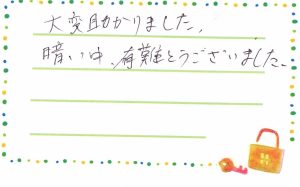 大変助かりました。
暗い中、有難とうございました。